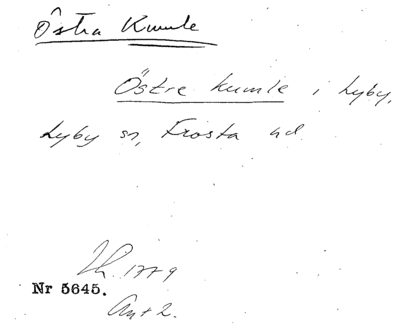 Östra Kumle
Östre kumle i Lyby,
Lyby sn, Frosta hd
1779
Nr 5645.
Ant 2.